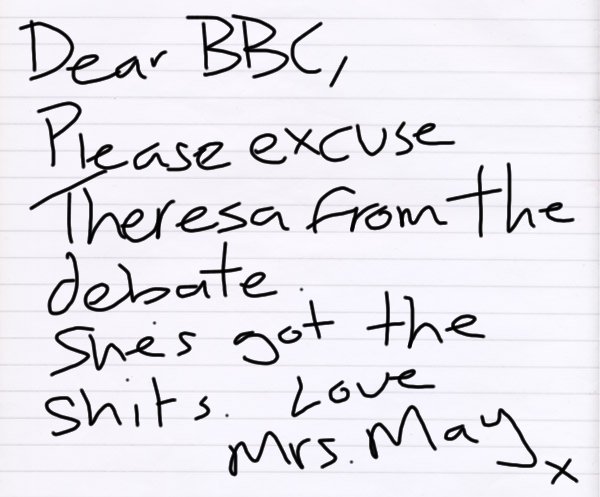 Dear BBC,
Please excuse
Theresa from the
debate.
She's got the
shits. Love
Mrs. May x